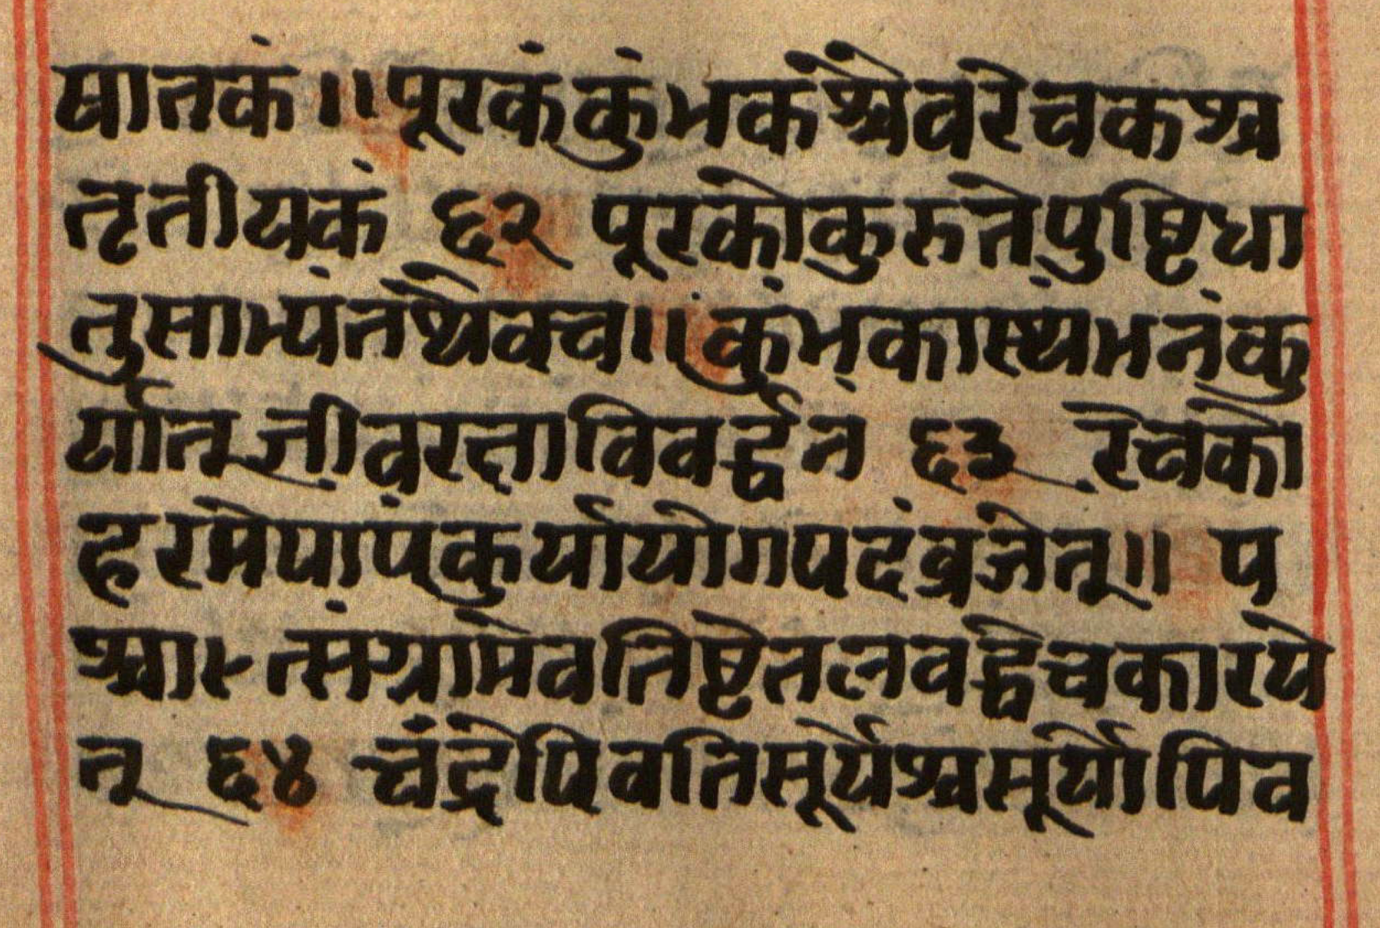 षातकं ॥ पूरकंकुंभकंश्चैवरेचकश्च
तृतीयकं ६२ पूरकोकुरुतेपुष्टिधा
तुसाम्यंतथैवच॥ कुंभकास्थंभनंकु
र्यात् जीवरक्षाविवर्द्धन ६३ रेचको
हरमेपापंकुर्यायोगपदंव्रजेत्॥ प
श्चात्संग्रामेवतिष्टेतलवद्धेचकारये
त् ६४ चंद्रेपिवतिसूर्येश्चसूर्योपिव